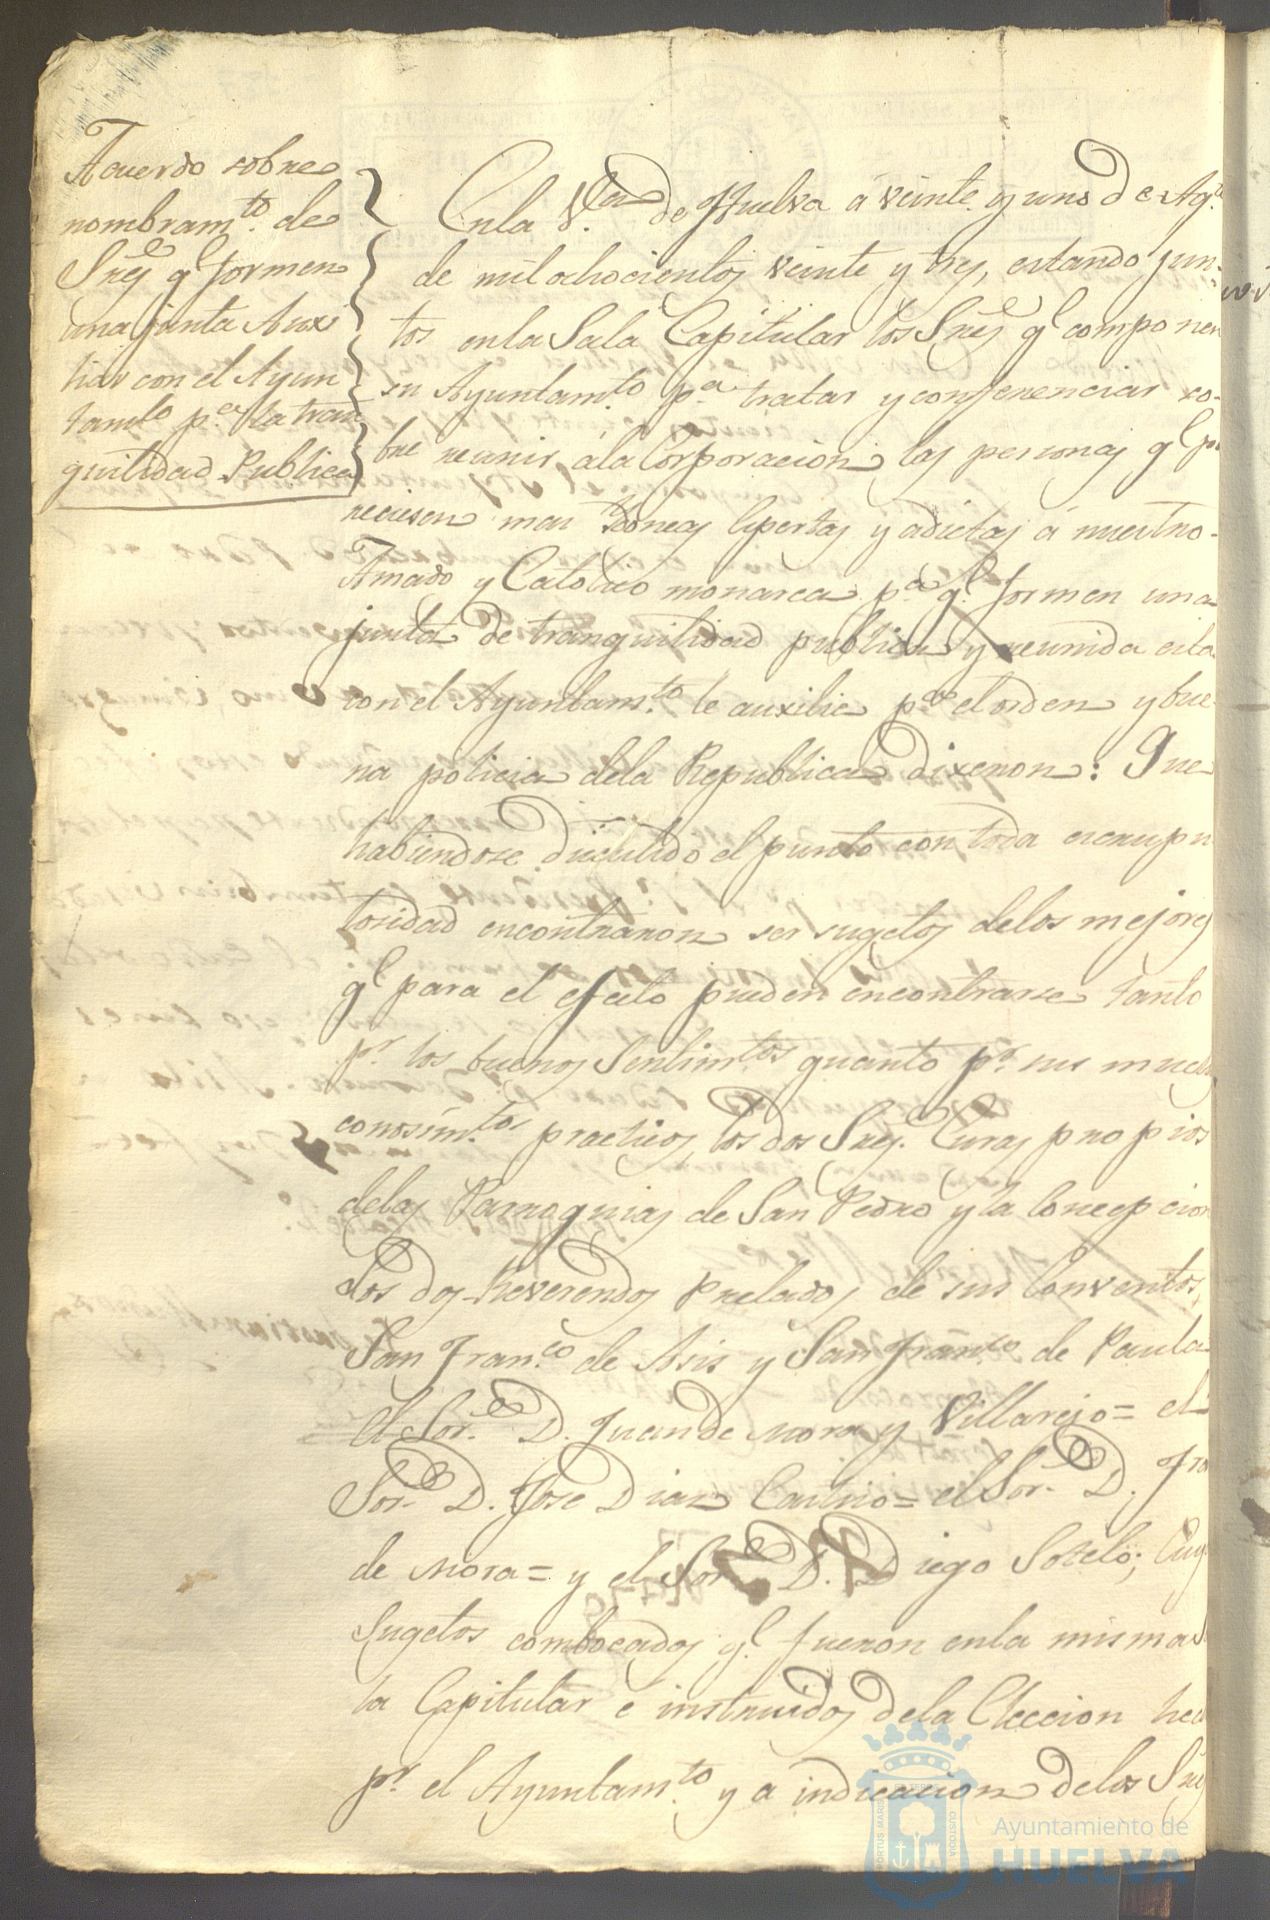 Acuerdo sobre
nombram.to de
Sres q.e formen
una junta Auxi
liar con el Ayun
tam.to p.a la tran
quilidad Publica
En la V.a de Huelva á veinte y uno de Ag.to
de mil ochocientos veinte y tres, estando jun-
tos en la Sala Capitular los Sres q.e componen
su Ayuntam.to p.a tratar y conferenciar so-
bre reunir á la Corporacion las personas q.e pa
reciesen mas idoneas expertas y adictas á nuestro
Amado y Catolico monarca p.a q.e formen una
junta de tranquilidad publica y reunida esta
con el Ayuntam.to le auxilie p.a el orden y bue
na policia dela Republica Dixeron: Que
habiendose discutido el punto con toda escrupu
losidad encontraron ser sugetos delos mejores
q.e para el efecto pueden encontrarse tanto
p.r los buenos Sentim.tos quanto p.r sus muchos
conosim.tos practicos, los dos Sres. Curas propios
delas Parroquias de San Pedro y la Concepcion
Los dos Reverendos Prelados de sus Conventos,
San Fran.co de Asis y San Fran.co de Paula
el Sor. D. Juan de Mora y Villarejo = el
Sor. D. Jose Diaz Castrio = el Sor. D. Fra
de Mora = y el Sor. D. Diego Sotelo; Cuy
Sugetos combocados q.e fueron enla misma S
la Capitular é instruidos dela Eleccion hec
p.r el Ayuntam.to y a indicacion delos Sres
Ayuntamiento de
HUELVA